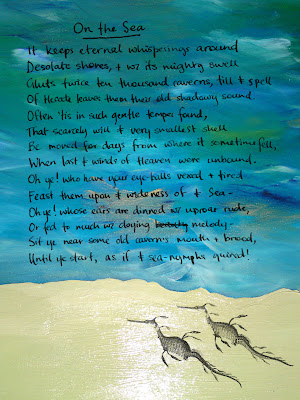 On the Sea
It keeps eternal whisperings around
Desolate shores, + w/ its mighty swell
Gluts twice ten thousand caverns, till t spell
Of Hecate leaves them their old shadowy sound.
Often 'tis in such gentle temper found,
That scarcely will t very smallest shell
Be moved for days from where it sometime fell,
When last t winds of Heaven were unbound.
Oh ye! who have your eye balls vexed + tired
Feast them upon t wideness of t Sea -
Oh ye! whose ears are dinned w/ uproar rude,
Or fed to much w/ cloying melody -
Sit ye near some old cavern's mouth + brood,
Until ye start, as if t sea-nymphs quired!